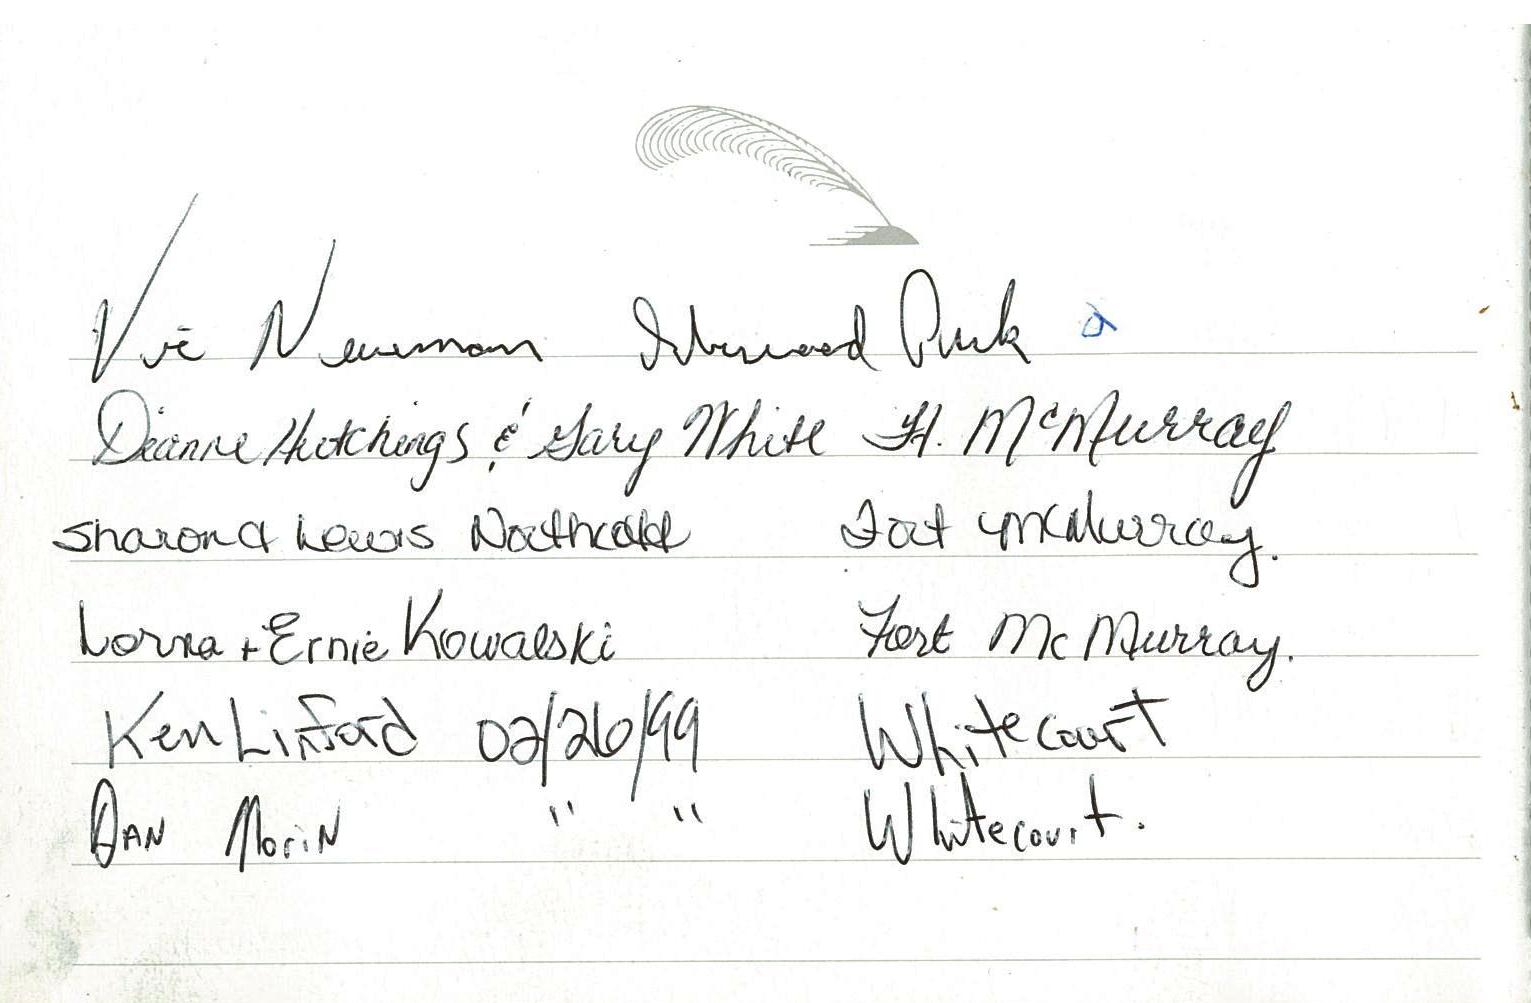 Vic Newman Sherwood Park a
Dianne Hutchings & Gary White Ft. McMurray
Sharon & Lewis Northcott Fort McMurray.
Lorna + Ernie Kowalski Fort Mc Murray.
Ken Linford 02/26/99 Whitecourt
DAN MoriN " " Whitecourt.